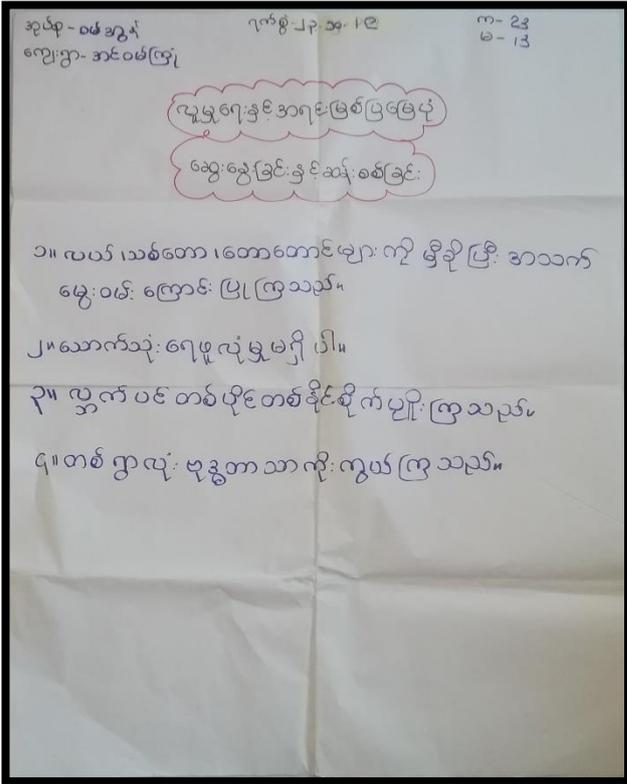 အုပ်စု - ဝမ်အွန် ရက်စွဲ - ၂၃.၁၁.၁၉ က - 23
ကျေးရွာ - အင်ဝမ်ကြုံ မ - 13
လူမှုရေးနှင့်အရင်းမြစ်ပြမြေပုံ
ဆွေးနွေးခြင်းနှင့်ဆန်းစစ်ခြင်း
၁။ လယ်၊သစ်တော၊တောတောင်များကို မှီခိုပြီး အသက်
မွေးဝမ်း ကြောင်း ပြုကြသည်။
၂။ သောက်သုံးရေဖူလုံမှုမရှိပါ။
၃။ လ္ဘက်ပင်တစ်ပိုင်တစ်နိုင်စိုက်ပျိုးကြသည်။
၄။ တစ်ရွာလုံး ဗုဒ္ဓဘာသာကိုးကွယ်ကြသည်။